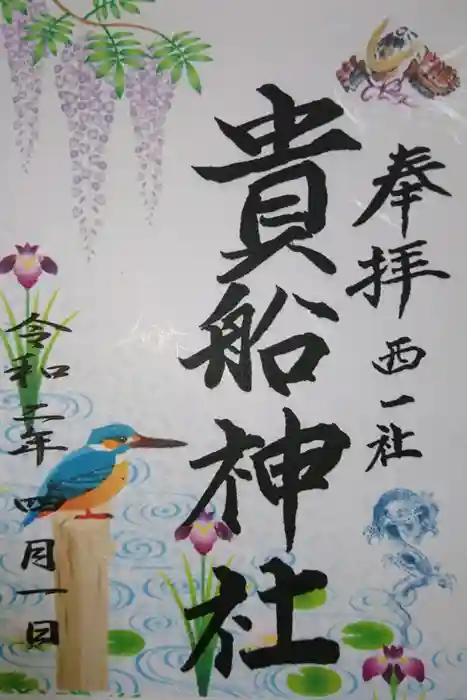 奉拝 西一社
貴船神社
令和二年四月一日